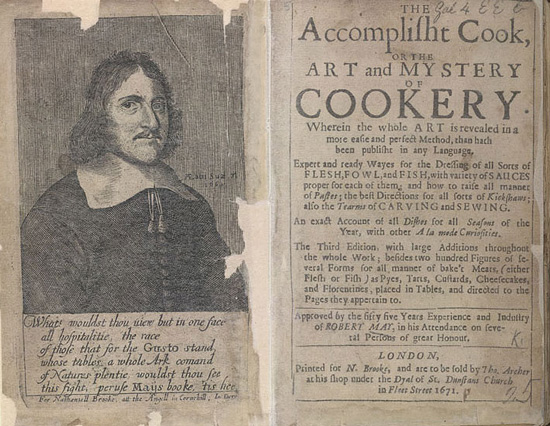 What! wouldst thou view but in one face
all hospitalitie, the race
of those that for the Gusto stand,
whose tables a whole Ark comand
of Natures plentie, wouldst thou see
this sight, peruse Mays booke, 'tis hee.
For Nathaniell Brooke, at the Angell in Cornehill,
THE
Accomplisht Cook,
OR THE
ART and MYSTERY
OF
COOKERY.
Wherein the whole ART is revealed in a
more easie and perfect Method, than hath
been publisht in any Language.
Expert and ready Wayes for the Dressing of all Sorts of
FLESH, FOWL, and FISH, with variety of SAUCES
proper for each of them; and how to raise all manner
of Pastes; the best Directions for all sorts of Kickshaws;
also the Tearms of CARVING and SEWING.
An exact Account of all Dishes for all Seasons of the
Year, with other A la mode Curiosities.
The Third Edition, with large Additions throughout
the whole Work; besides two hundred Figures of se-
veral Forms for all manner of bake't Meats, (either
Flesh or Fish) as Pyes, Tarts, Custards, Cheesecakes,
and Florentines, placed in Tables, and directed to the
Pages they appertain to.
Approved by the fifty five Years Experience and Industry
of ROBERT MAY, in his Attendance on seve-
ral Persons of great Honour.
K.
LONDON,
Printed for N. Brooke, and are to be sold by Tho. Archer
at his shop under the Dyal of St. Dunstans Church
in Fleet Street 1671.